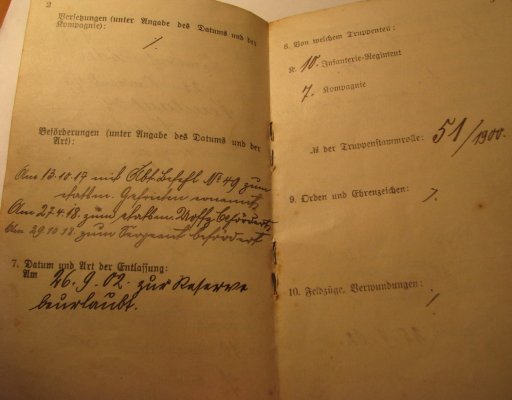 2
Versetzungen (unter Angabe des Datums und der
Kompagnie):
/.
Beförderungen (unter Angabe des Datums und der
Art):
Am 13.10.17 mit Abt. Befehl No 49 zum
etatm. Gefreiten ernannt
Am 27.4.18. zum etatm. Uoffz. befördert.
Am 29.10.18. zum Sergeant befördert
7. Datum und Art der Entlassung:
Am 26. 9. 02. zur Reserve
beurlaubt.
8. Von welchem Truppenteil:
K. 10. Infanterie-Regiment
7. Kompagnie
№ der Truppenstammrolle: 51/1900.
9. Orden und Ehrenzeichen: /.
10. Feldzüge, Verwundungen: /